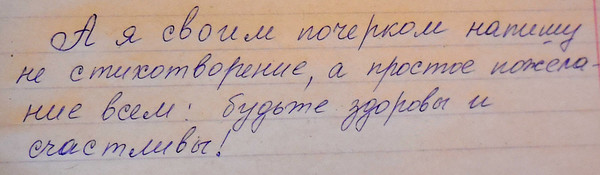 А я своим почерком напишу
не стихотворение, а простое пожела-
ние всем: будьте здоровы и
счастливы!